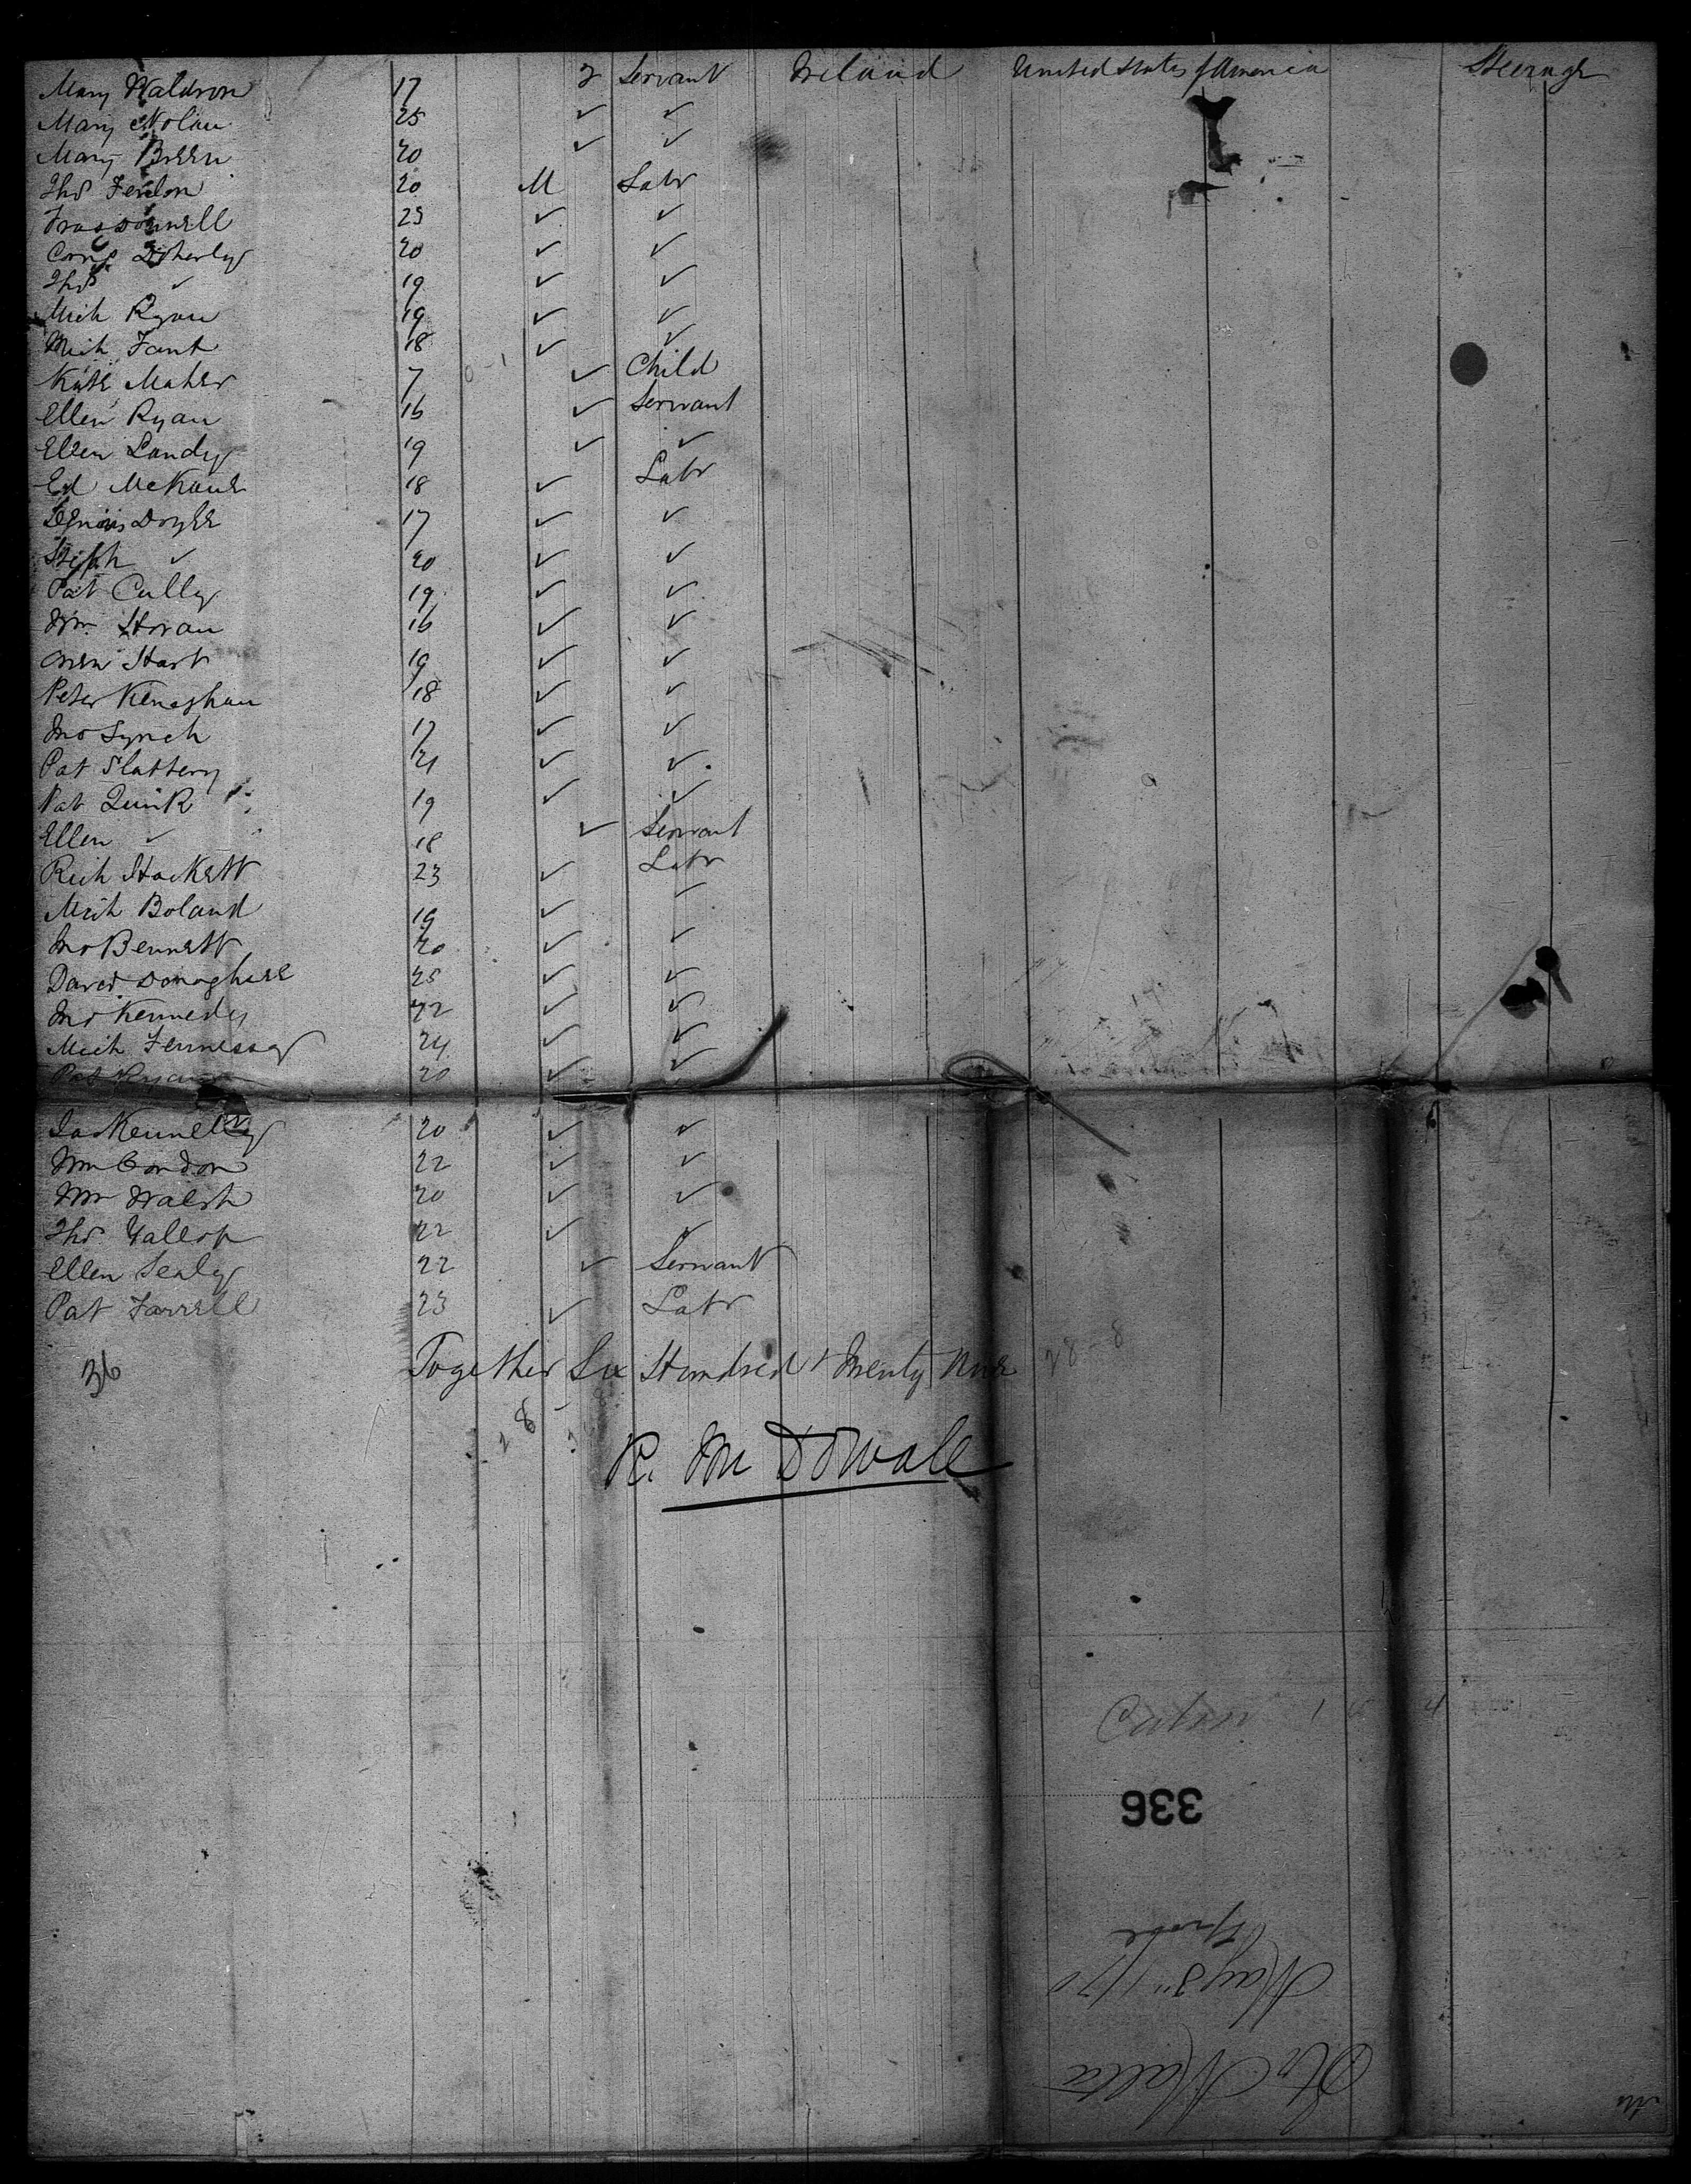 Mary Waldron 17 Servant Ireland United States of America Steerage
Mary Nolan 25 ✓ ✓
Mary Breen 20 ✓ ✓
Thos 20 M Labr
Fras Donnell 25 ✓ ✓
Corns Doherty 20 ✓ ✓
Thos ✓ 19 ✓ ✓
Mich Ryan 19 ✓ ✓
Mich Fant 18 ✓ ✓
Kate Maher 7 ✓ Child
Ellen Ryan 16 ✓ Servant
Ellen Landy 19 ✓ ✓
Ed McKane 18 ✓ Labr
Dennis Doyle 17 ✓ ✓
Steph ✓ 20 ✓ ✓
Pat Cully 19 ✓ ✓
Wm Horan 16 ✓ ✓
Owen Hart 19 ✓ ✓
Peter Keneghan 18 ✓ ✓
Jno Lynch 17 ✓ ✓
Pat Slattery 21 ✓ ✓
Pat Quirk 19 ✓ ✓
Ellen ✓ 18 ✓ Servant
Rich Hackett 23 ✓ Labr
Mich Boland 19 ✓ ✓
Jno Bennett 20 ✓ ✓
David Donoghue 25 ✓ ✓
Jno Kennedy 22 ✓ ✓
Mich Fennessy 24 ✓ ✓
Pat Ryan 20 ✓ ✓
Jas Kennelly 20 ✓ ✓
Wm Condon 22 ✓ ✓
Wm Walsh 20 ✓ ✓
Thos Gallop 22 ✓ ✓
Ellen Sealy 22 ✓ Servant
Pat Farrell 23 ✓ Labr
36 Together Six Hundred & Twenty Nine
R. McDowall
336
May 3" /70
Str Malta